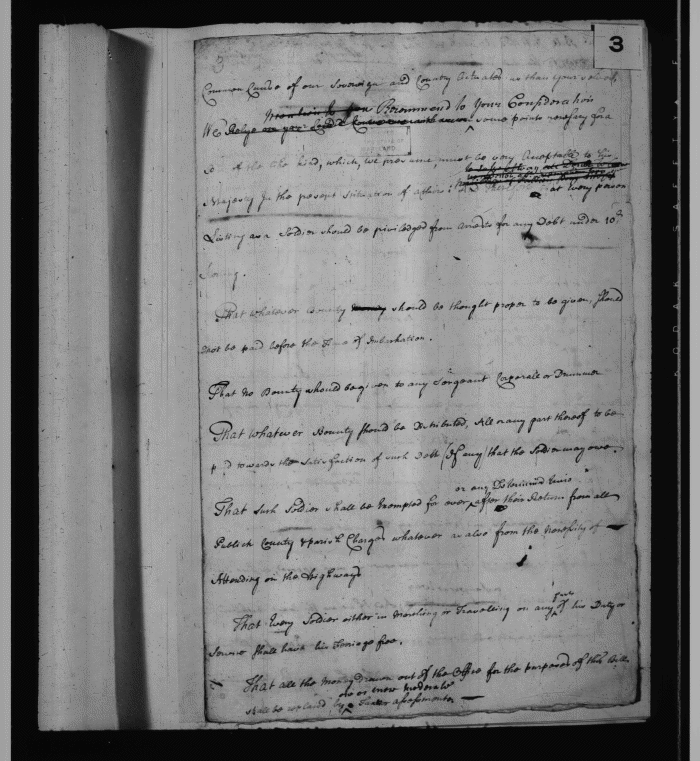 3
3
Common Cause of our Sovereign and Country Actuated us than your selves,
mention to you Recommend to Your Consideration
We some points necessary for a
of the like kind, which, we presume must be very Acceptable to his
Majesty In the present Situation of affairs: at Every person
Listing as a Soldier should be priviledged from arrests for any Debt under 10
That whatever Bounty money should be thought proper to be given, should
not be paid before the Time of Imbarkation.
That No Bounty should be given to any Sergeant Corporal or Drummer
That whatever Bounty should be Distributed, All or any part thereof to be
p d towards the Satisfaction of such Debt (If any) that the Soldier may owe.
or any Determin'd time
That such Soldier shall be Exempted for ever, after their Return from all
Publick County & parish Charges whatever as also from the necessity of
Attending on the Highways
That Every Soldier either in Marching or Travelling on any of his Duty or
Service shall have his Ferriage free.
That all the Money Drawn out of the Office for the purposes of this Bill
one or more moderate
shall be replaced by assessments
KODAK SAFETY